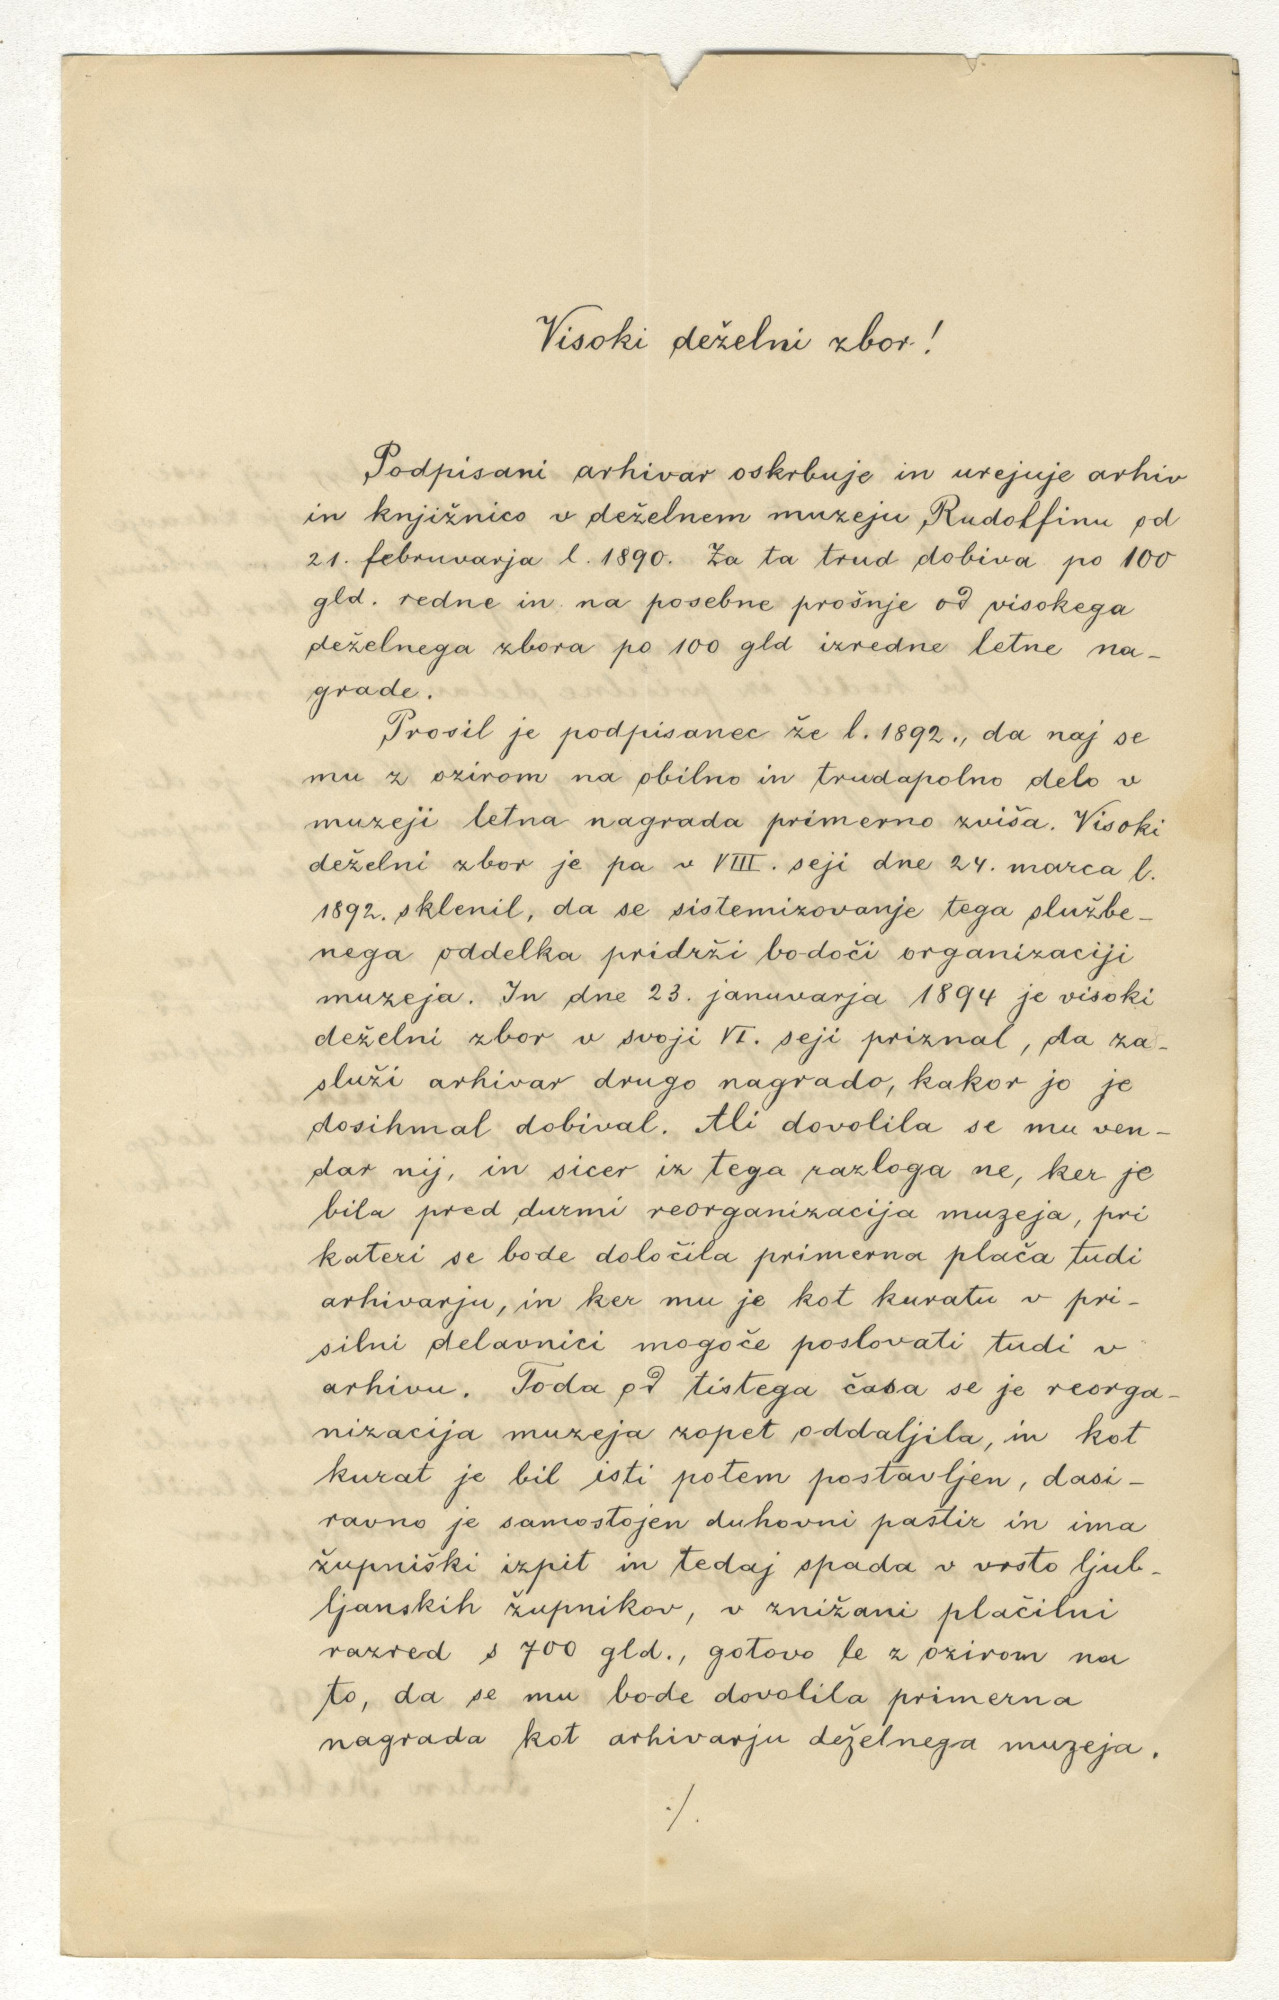 Visoki deželni zbor!
Podpisani arhivar oskrbuje in urejuje arhiv
in knjižnico v deželnem muzeju Rudolfinu od
21. februvarja l. 1890. Za ta trud dobiva po 100
gld. redne in na posebne prošnje od visokega
deželnega zbora po 100 gld izredne letne na-
grade.
Prosil je podpisanec že l. 1892., da naj se
mu z ozirom na obilno in trudapolno delo v
muzeji letna nagrada primerno zviša. Visoki
deželni zbor je pa v VIII. seji dne 24. marca l.
1892. sklenil, da se sistemizovanje tega službe-
nega oddelka pridrži bodoči organizaciji
muzeja. In dne 23. januvarja 1894 je visoki
deželni zbor v svoji VI. seji priznal, da za-
služi arhivar drugo nagrado, kakor jo je
dosihmal dobival. Ali dovolila se mu ven-
dar nij, in sicer iz tega razloga ne, ker je
bila pred durmi reorganizacija muzeja, pri
kateri se bode določila primerna plača tudi
arhivarju, in ker mu je kot kuratu v pri-
silni delavnici mogoče poslovati tudi v
arhivu. Toda od tistega časa se je reorga-
nizacija muzeja zopet oddaljila, in kot
kurat je bil isti potem postavljen, dasi-
ravno je samostojen duhovni pastir in ima
župniški izpit in tedaj spada v vrsto ljub-
ljanskih župnikov, v znižani plačilni
razred s 700 gld., gotovo le z ozirom na
to, da se mu bode dovolila primerna
nagrada kot arhivarju deželnega muzeja.
./.